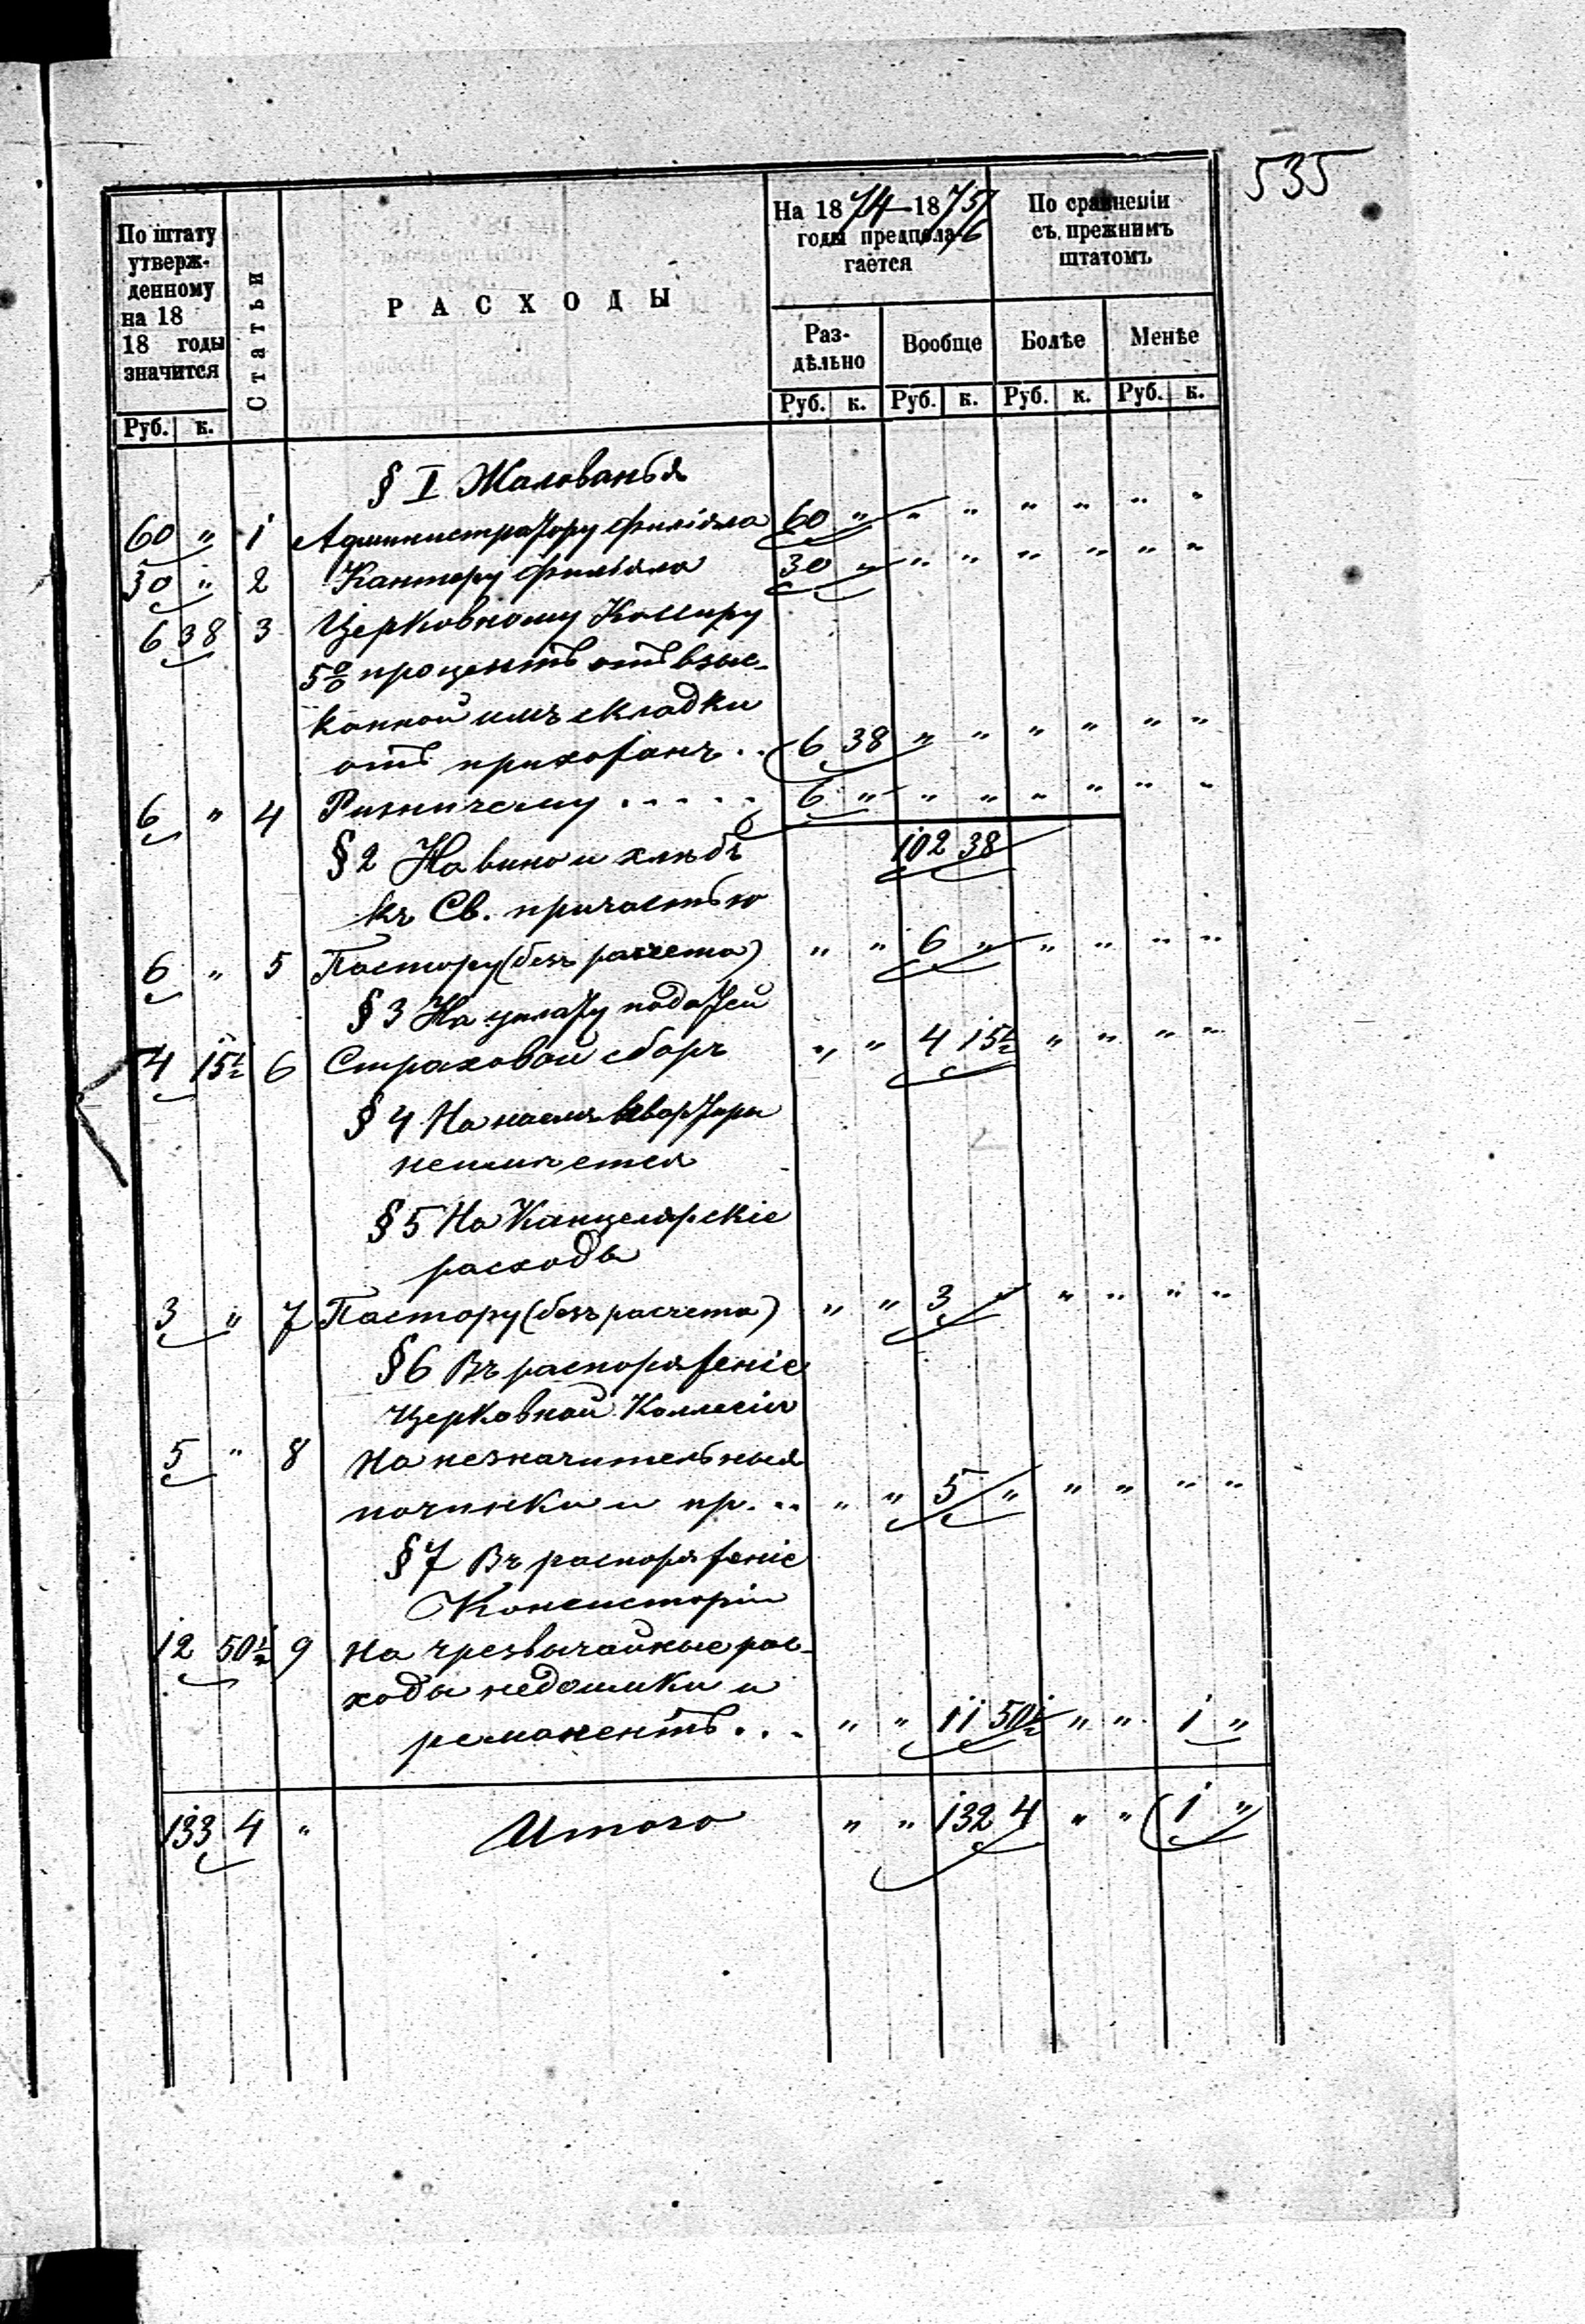 535
По штату утверж-денному на 18 18 годы значится
Статьи
РАСХОДЫ
На 1874-1875/6 годы предпола-гается
По сравненіи съ прежнимъ штатомъ
Раз-дѣльно Вообще Болѣе Менѣе
Руб. к. Руб. к. Руб. к. Руб. к. Руб. к.
§ I Жалованья
60 " 1 Администратору филіала 60 " " " " " " "
30 " 2 Кантору филіала 30 " " " " " " "
6 38 3 Церковному Кассиру
5% процентъ отъ взыс-
канной имъ складки
отъ прихожанъ .. 6 38 " " " " " "
6 " 4 Ризничему . . . . . 6 " " " " " " "
§ 2 На вино и хлѣбъ 102 38
къ Св. причастью
6 " 5 Пастору (безъ расчета) " " 6 " " " " "
§ 3 На уплату податей
4 15½ 6 Страховой сборъ " " 4 15½ " " " "
§ 4 На наемъ квартиры
неимѣется
§ 5 На Канцелярскіе
расходы
3 " 7 Пастору (безъ расчета) " " 3 " " " " "
§ 6 Въ распоряженіе
Церковной Коллегіи
5 " 8 На незначительныя
починки и пр. .. " " 5 " " " " "
§ 7 Въ распоряженіе
Консисторіи
12 50½ 9 На чрезвычайные рас-
ходы недоимки и
ремонентъ . . . " " 11 50½ " " 1 "
133 4 " Итого " " 132 4 " " 1 "